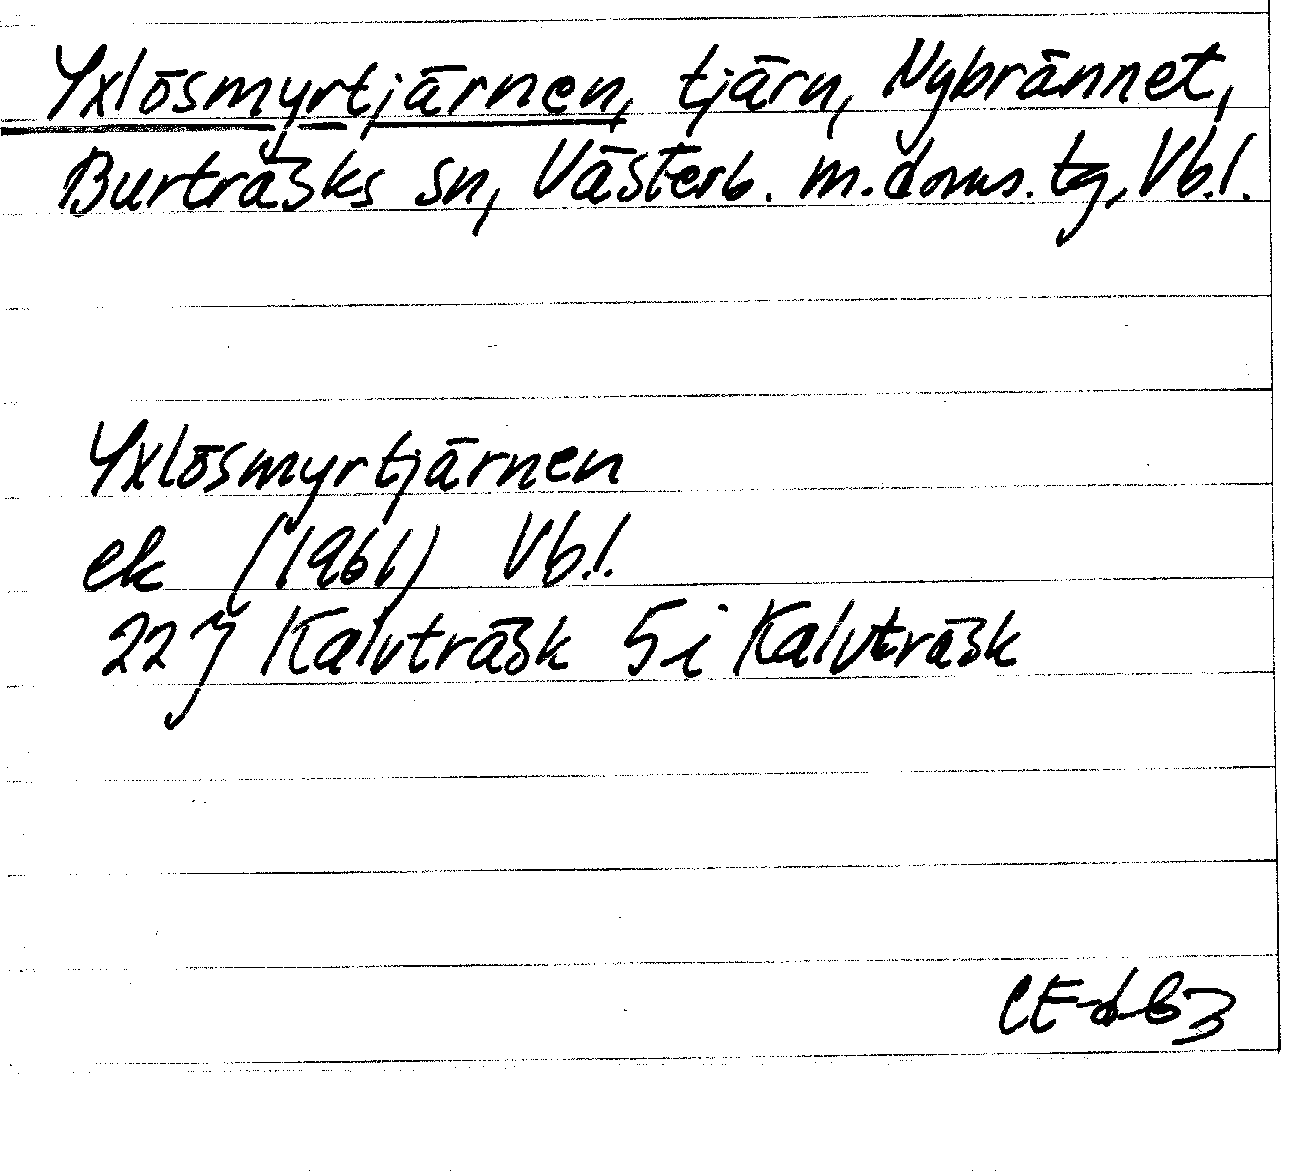 Yxlösmyrtjärnen, tjärn, Nybrännet,
Burträsks sn, Västerb. m. doms. tg, Vb.l.
Yxlösmyrtjärnen
ek (1961) Vb.l.
22 J Kalvträsk 5 i Kalvträsk